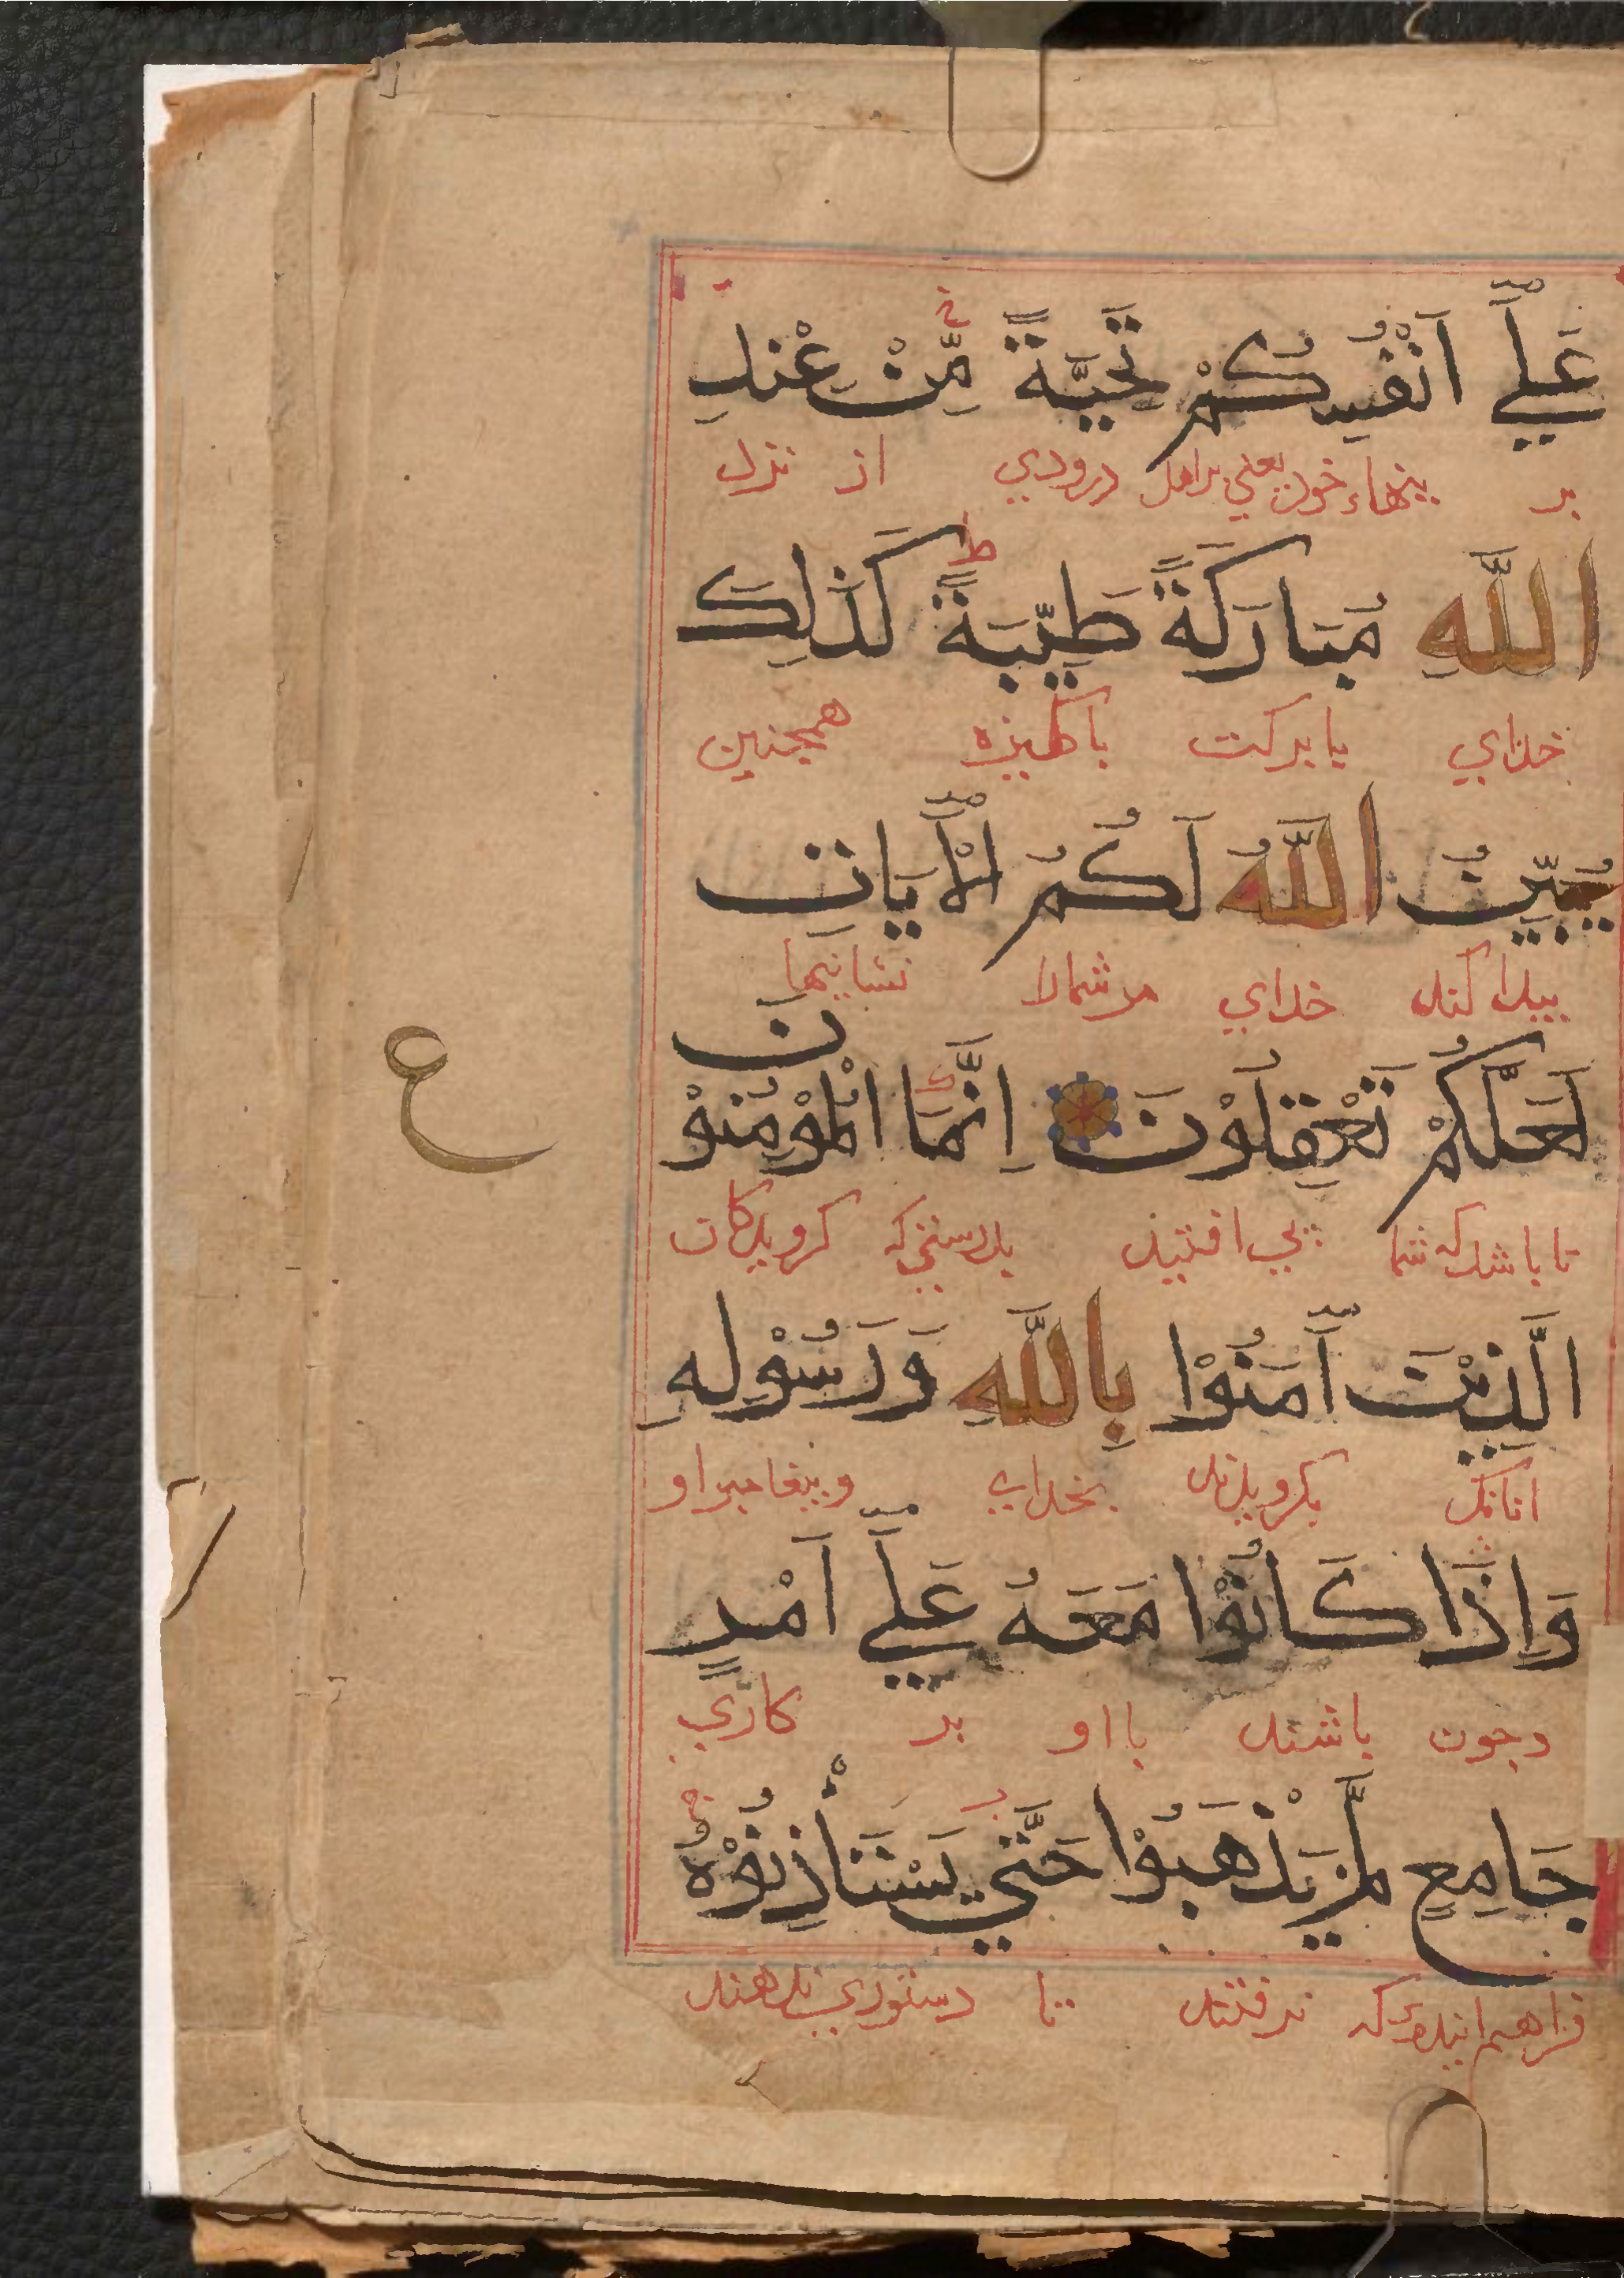 عَلَىٰٓ اَنْفُسِكُمْ تَحِيَّةً مِّنْ عِنْدِ
بر بتنهاء خود یعنی بر اهل درودي از نزد
اللّٰهِ مُبَارَكَةً طَيِّبَةً كَذٰلِكَ
خداي با بركت باكيزه همجنين
يُبَيِّنُ اللّٰهُ لَكُمُ الْاٰيَاتِ
بيدا كند خداي مر شما را نشانيها
لَعَلَّكُمْ تَعْقِلُوْنَ اِنَّمَا الْمُؤْمِنُوْنَ
ع
تا باشد كه شما افتيد بدرستي كه كرويدكان
الَّذِيْنَ آمَنُوْا بِاللّٰهِ وَرَسُوْلِهِ
انانك بكرويدند بخداي و بيغامبر او
وَاِذَا كَانُوْا مَعَهُ عَلَىٰٓ اَمْرٍ
وجون باشند با او بر كاري
جَامِعٍ لَّمْ يَذْهَبُوْا حَتّٰي يَسْتَأْذِنُوْهُ
فراهم كه نرفتند تا دستوري